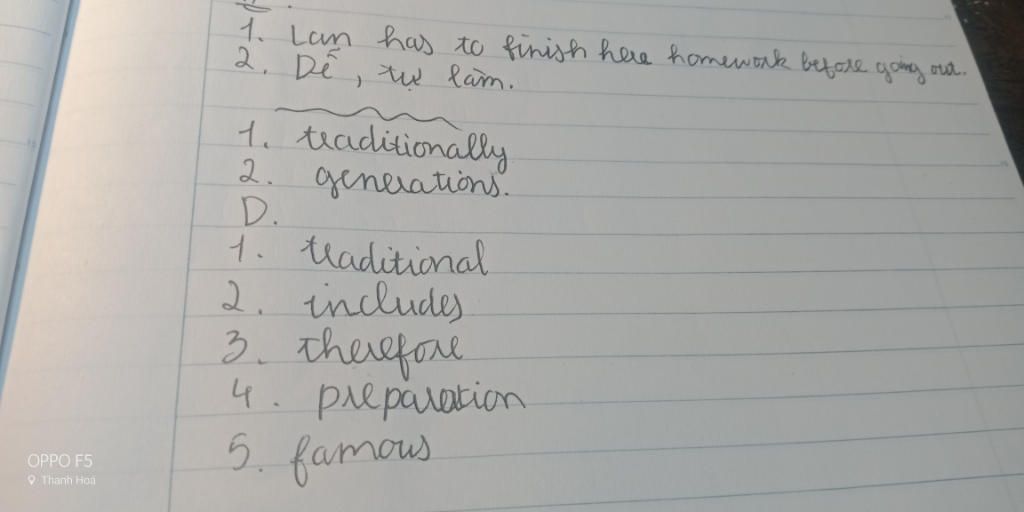 1. Lan has to finish here homework before going out.
2. Dễ, tự làm.
1. traditionally
2. generations.
D.
1. traditional
2. includes
3. therefore
4. preparation
5. famous
OPPO F5
Thanh Hoá